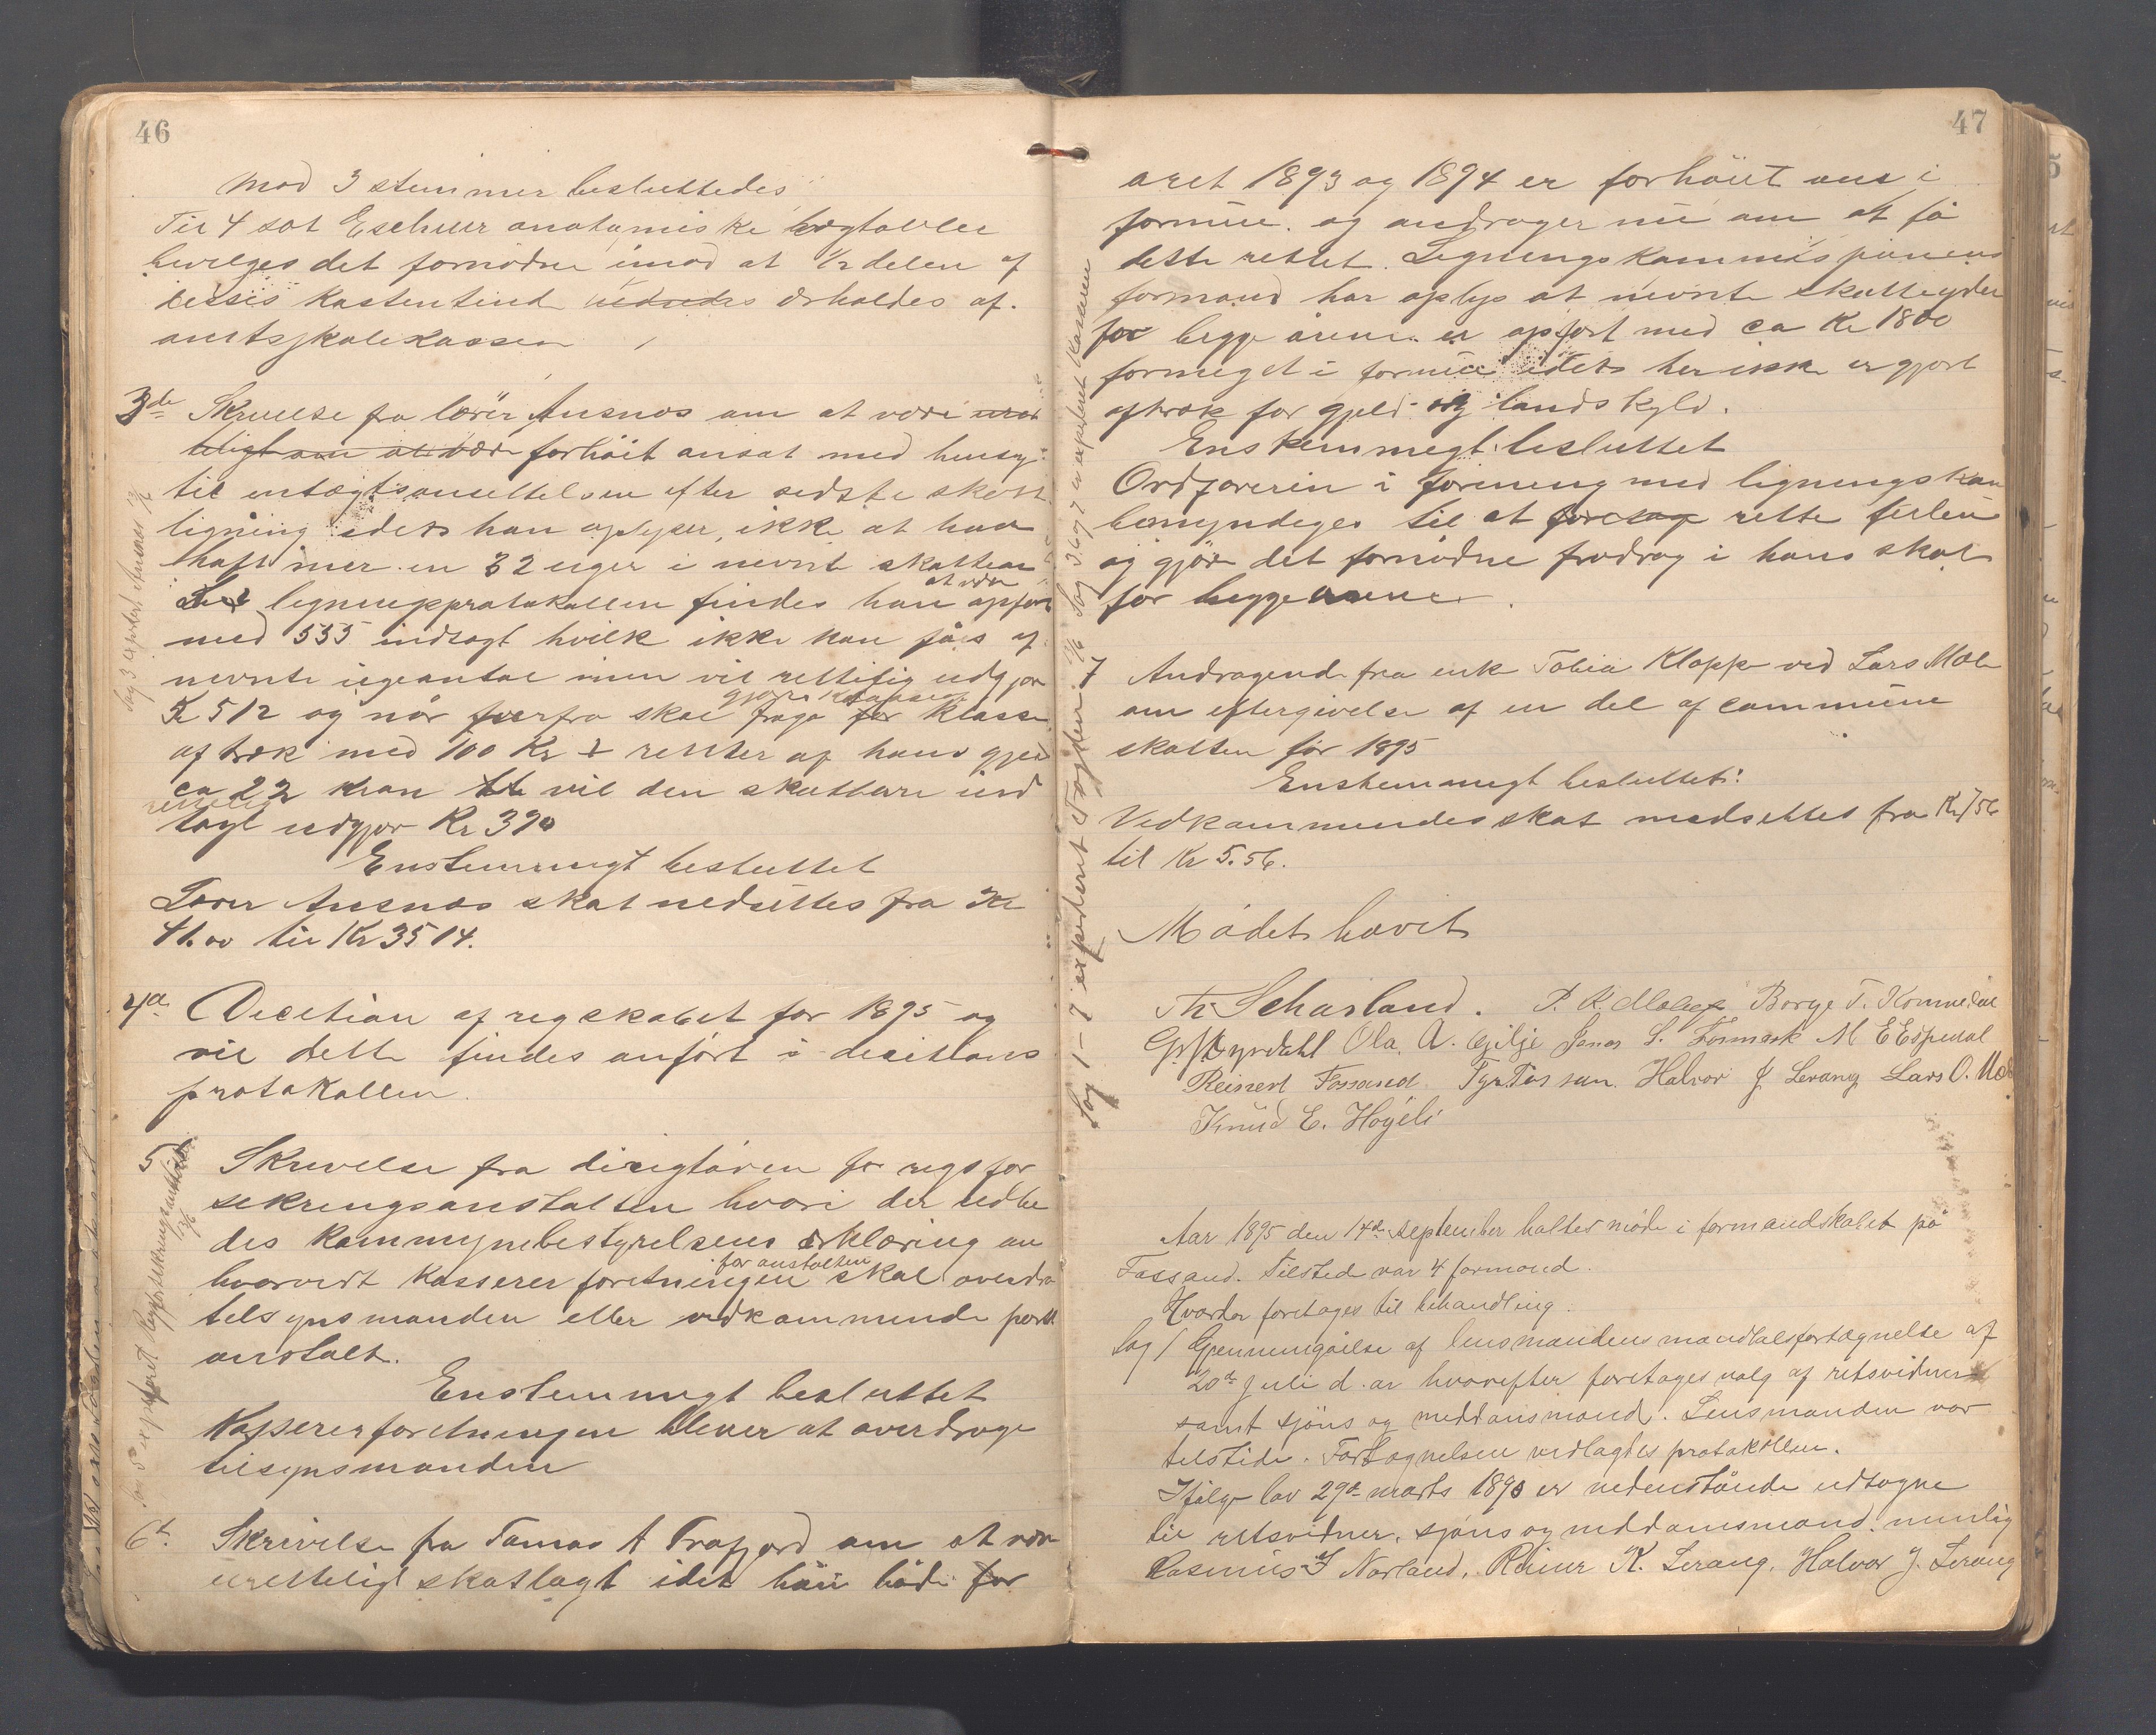 46
Mod 3 stemmer besluttedes
Til 4 sæt Eschner anatomiske vægtavler
bevilges det fornødne imod at 1/2 delen af
disses kostentend erholdes af
amtsskolekassen
3de Skrivelse fra lærer Ausnes om at være uret
teligt om at være forhöit ansat med hensyn
til indtægtsansettelsen efter sidste skatte
ligning idet han oplyser, ikke at have
haft mer en 32 uger i nevnte skatteaar
I ligningsprotokollen findes han at være opført
med 555 indtægt hvilk ikke kan fåes af
nevnte ugeantal men vil rettelig udgjøre
Kr 512 og når herfra skal fraga for klasse
aftræk med 100 Kr + renter af hans gjeld
ca 22 kron vil den skatbare ind
tægt rettelig udgjør Kr 390
Enstemmigt besluttet
Lærer Ausnes skat nedsættes fra Kr
41.00 til Kr 35 14.
Sag 3 expedert Ausnes
4de Decition af regskabet for 1895 og
vil dette findes anført i decitions
protokollen.
5 Skrivelse fra dirigtøren for rigsfor
sekringsanstalten hvori der udbe
des kommynebestyrelsens erklæring om
hvorvidt kasserer foretningen for anstalten skal overdra
tilsynsmanden eller vedkommende post
anstalt.
Enstemmigt besluttet
Kassererforetningen bliver at overdrage
tilsynsmanden
Sag 5 expederet Rigsforsekringsanstalten
6te Skrivelse fra Tomas A Frafjord om at være
uretteligt skatlagt idet han både for
47
aret 1893 og 1894 er forhöiet ans i
formue. og andrager nu om at få
dette rettet. Ligningskommissionens
formand har oplys at nevnte skatteyder
for begge årene er opført med ca Kr 1800
formeget i formue idet her ikke er gjort
aftræk for gjeld og landskyld.
Enstemmigt besluttet
Ordføreren i forening med ligningskom
bemyndiges til at foretag rette feilen
og gjøre det fornødne fradrag i hans skat
for begge årene.
7 Andragende fra enke Tobia Klopp ved Lars Mæle
om eftergivelse af en del af commune
skatten for 1895
Enstemmigt besluttet:
Vedkommendes skat nedsættes fra Kr 7 56
til Kr 5.56.
Sag 1–7 expederet Fogden Sag 3.6 og 7 er expederet Kasseren
Mødet hævit
Th Scharland. Børge T. Kommedal
G. Gyrdahl Ola A. Gilje Jonas S. Fosmark M E Espedal
Reinert Fossand. Halvor J Lerang Lars O. Mæle
Knud E. Høgeli
Aar 1895 den 14de september holtes møde i formandskabet på
Fossand. Tilstede var 4 formænd.
Hvorda foretoges til behandling.
Sag 1 Gjennemgåelse af lensmandens mandtalsfortægnelse af
20de Juli d. ar hvorefter foretoges valg af retsvidner
samt skjöns og meddomsmænd. Lensmanden var
tilstede. Fortægnelsen vedlagdes protokollen.
Ifölge lov 29de marts 1890 er nedenstående udtagne
til retsvidner, skjöns og meddomsmænd. nemlig
Rasmus J Norland, Reiner K. Lerang, Halvor J. Lerang